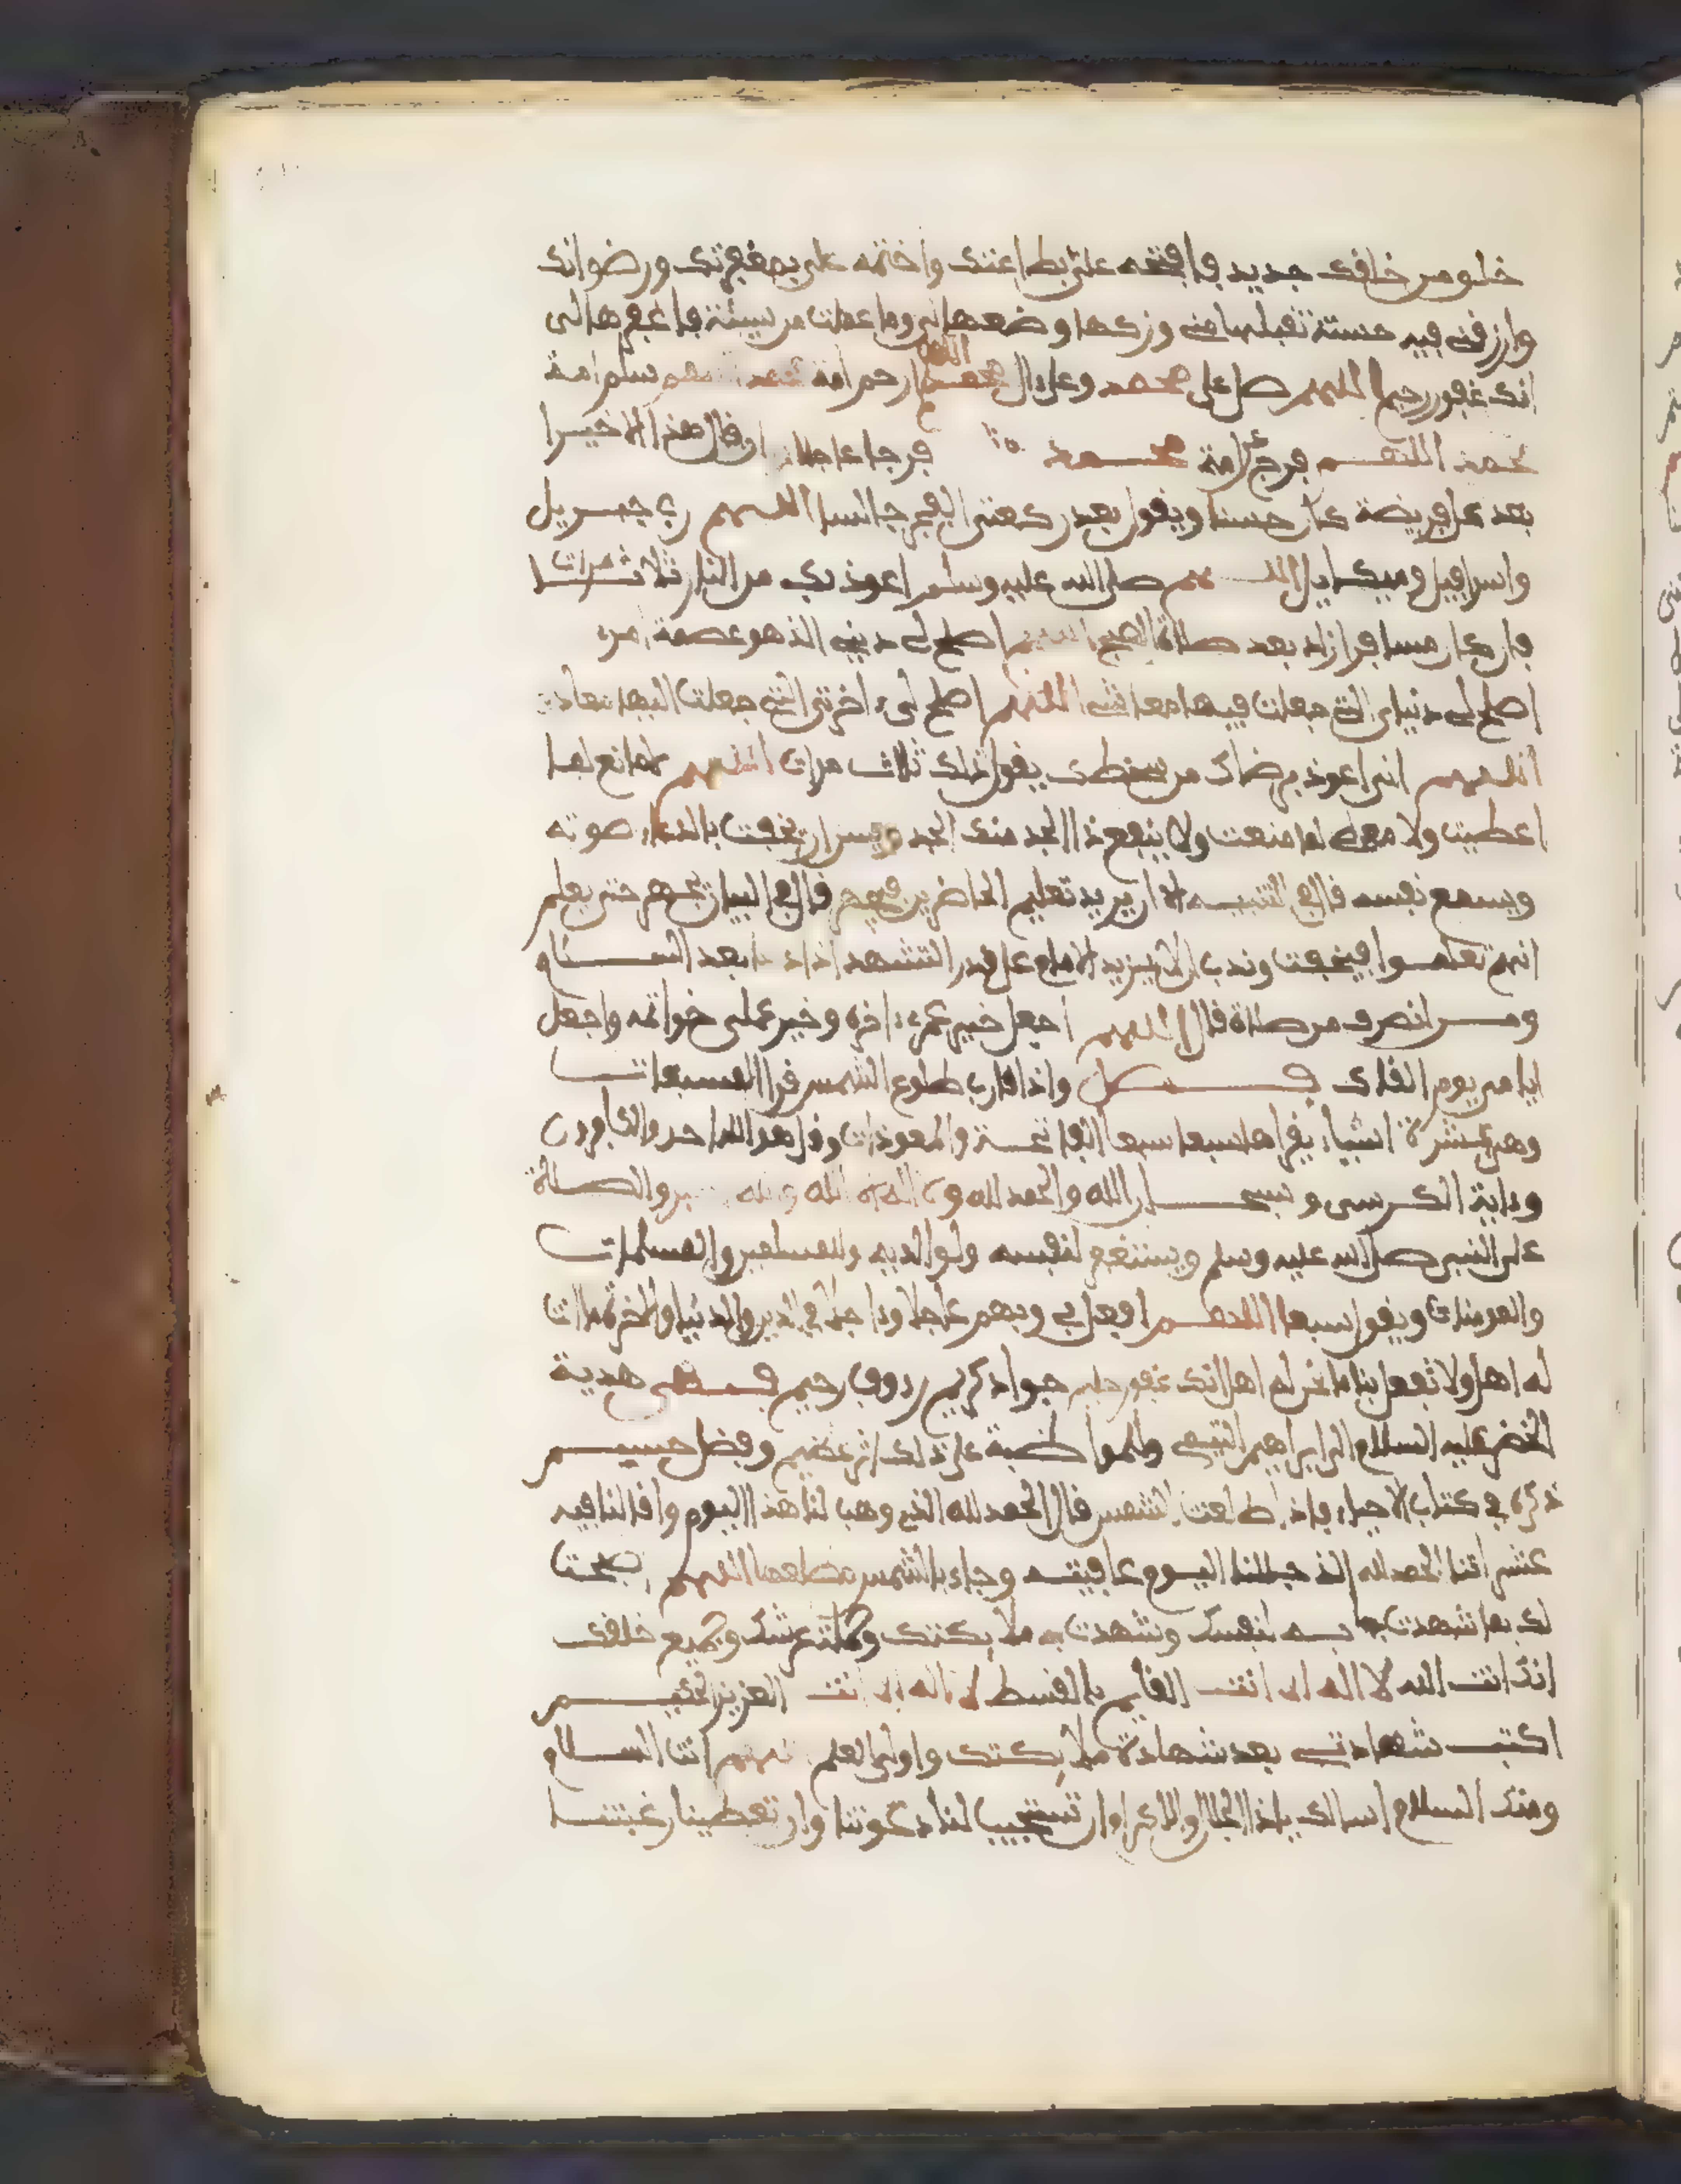 خلق من خلقك جديد فافتحه علي بطاعتك واختمه علي بمغفرتك ورضوانك
وارزقني فيه حسنة تقبلها مني وزكها وضعفها لي وما عملت من سيئة فاغفرها لي
انك غفور رحيم اللهم صل على محمد وعلى ال محمد اللهم ارحم امة محمد اللهم سلم امة
محمد اللهم فرج عن امة محمد فرجا عاجلا وان قال هذا الاخير
بعد كل فريضة كان حسنا ويقول بعد ركعتي الفجر جالسا اللهم رب جبريل
واسرافيل وميكايل صلى الله عليه وسلم اعوذ بك من النار ثلاث مرات
فان كان مسافرا زاد بعد صلاة الصبح اللهم اصلح لي ديني الذي هو عصمة امري
اصلح لي دنياي التي جعلت فيها معاشي اللهم اصلح لي ءاخرتي التي جعلت اليها معادي
اللهم اني اعوذ برضاك من سخطك يقول ذلك ثلاث مرات اللهم لا مانع لما
اعطيت ولا معطي لما منعت ولا ينفع ذا الجد منك الجد ويسن ان يخفت بالدعاء صوته
ويسمع نفسه قال في التنبيه الا ان يريد تعليم الحاضرين فيجهر قال في البيان يجهر حتى يعلم
انهم تعلموا فيخفت وندب ان لا يزيد الامام على قدر التشهد اذا دعا بعد السلام
ومن انصرف من صلاة قال اللهم اجعل خير عمري ءاخره وخير عملي خواتمه واجعل
ايامي يوم القاك فصل واذا قارب طلوع الشمس قرا المسبعات
وهي عشرة اشياء يقراها سبعا سبعا الفاتحة والمعوذات وقل هو الله احد والكافرون
وءاية الكرسي وسبحان الله والحمد لله ولا اله الا الله والله اكبر والصلاة
على النبي صلى الله عليه وسلم ويستغفر لنفسه ولوالديه وللمسلمين والمسلمات
والمومنات ويقول سبعا اللهم افعل بي وبهم عاجلا وءاجلا في الدين والدنيا والاخرة ما انت
له اهل ولا تفعل بنا ما نحن له اهل انك غفور حليم جواد كريم رءوف رحيم فهي هدية
الخضر عليه السلام الى ابراهيم التيمي وللمواظبة على ذلك اثر عظيم وفضل جسيم
ذكره في كتاب الاحياء فاذا طلعت الشمس قال الحمد لله الذي وهب لنا هذا اليوم واقالنا فيه
عثراتنا الحمد لله الذي جللنا اليوم عافيته وجاء بالشمس من مطلعها اللهم اصبحت
لك بما شهدت به لنفسك وشهدت به ملايكتك وحملة عرشك وجميع خلقك
انك انت الله لا اله الا انت القايم بالقسط لا اله الا انت العزيز الحكيم
اكتب شهادتي بعد شهادة ملايكتك واولي العلم اللهم انت السلام
ومنك السلام اسالك يا ذا الجلال والاكرام ان تستجيب لنا دعوتنا وان تعطينا رغبتنا